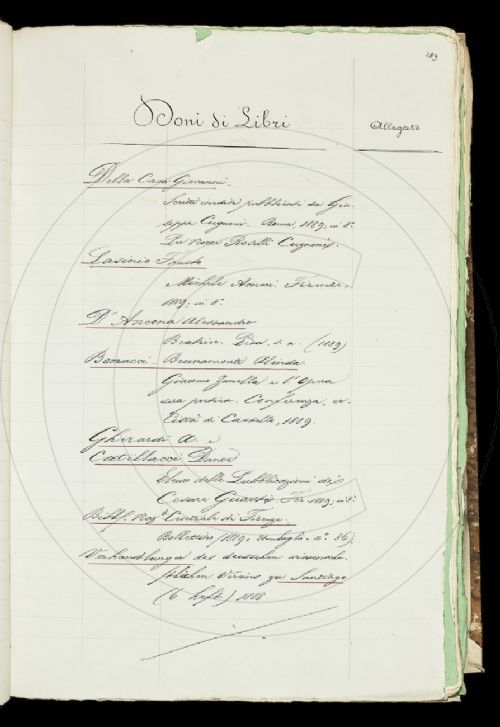 Doni di Libri
Allegati
Della Casa Giovanni.
Scritti inediti pubblicati da Giu-
seppe Cugnoni. Roma, 1889; in 8°
Per nozze Cugnoni.
Lasinio Fausto
Michele Amari. Firenze,
1889; in 8°
D'Ancona Alessandro
Beatrice. Pisa, s. a. (1889)
Bonacci Brunamonti Alinda.
Giacomo Zanella e l'opera
sua poetica. Conferenza, ec.
Città di Castello, 1889.
Gherardi A. e
Castellacci Dante
Elenco delle Pubblicazioni di
Cesare Guasti. Fir. 1889; in 8°
Bibl. Naz. Centrale di Firenze.
Bollettino (1889, luglio. n.° 86).
Verhandlungen des deutschen wissenscha-
ftlichen Vereins zu Santiago
(6 heft) 1888